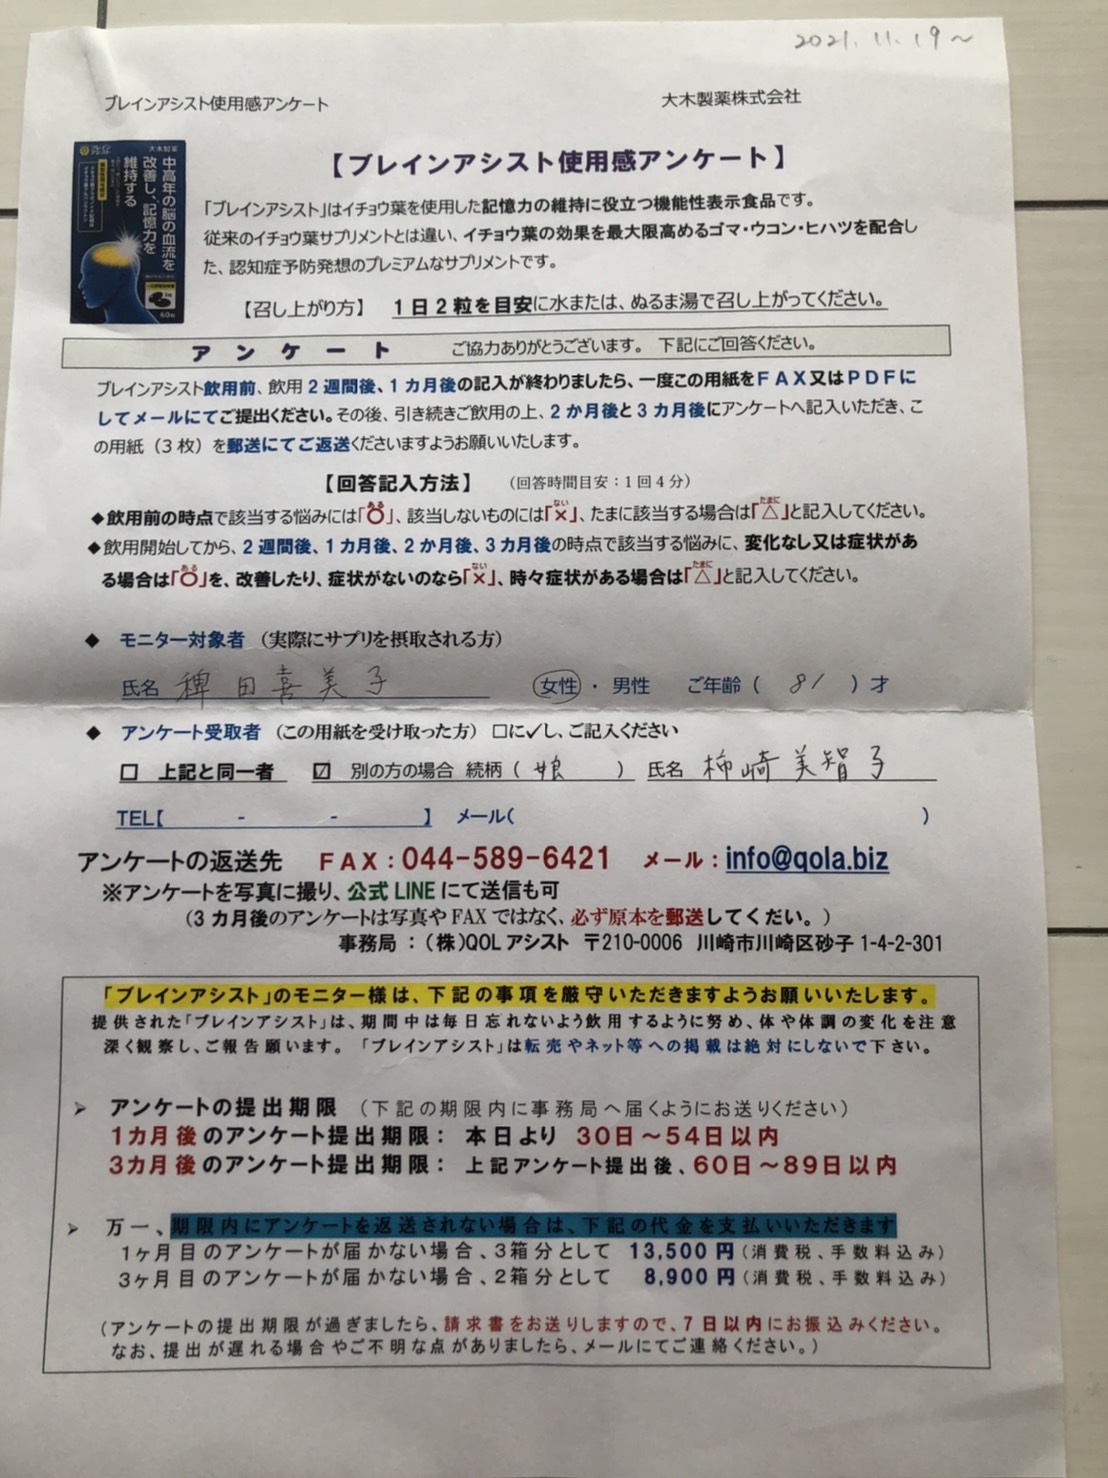 2021.11.19～
ブレインアシスト使用感アンケート
大木製薬株式会社
大木製薬
中高年の脳の血流を
改善し、記憶力を
維持する
60粒
【ブレインアシスト使用感アンケート】
「ブレインアシスト」はイチョウ葉を使用した記憶力の維持に役立つ機能性表示食品です。
従来のイチョウ葉サプリメントとは違い、イチョウ葉の効果を最大限高めるゴマ・ウコン・ヒハツを配合し
た、認知症予防発想のプレミアムなサプリメントです。
【召し上がり方】 1日2粒を目安に水または、ぬるま湯で召し上がってください。
アンケート ご協力ありがとうございます。 下記にご回答ください。
ブレインアシスト飲用前、飲用2週間後、1カ月後の記入が終わりましたら、一度この用紙をFAX又はPDFに
してメールにてご提出ください。その後、引き続きご飲用の上、2か月後と3カ月後にアンケートへ記入いただき、こ
の用紙（3枚）を郵送にてご返送くださいますようお願いいたします。
【回答記入方法】 （回答時間目安：1回4分）
◆飲用前の時点で該当する悩みには「〇」、該当しないものには「×」、たまに該当する場合は「△」と記入してください。
◆飲用開始してから、2週間後、1カ月後、2か月後、3カ月後の時点で該当する悩みに、変化なし又は症状があ
る場合は「〇」を、改善したり、症状がないのなら「×」、時々症状がある場合は「△」と記入してください。
◆ モニター対象者 （実際にサプリを摂取される方）
氏名 稗田喜美子 女性・男性 ご年齢（ 81 ）才
◆ アンケート受取者 （この用紙を受け取った方）□に✓し、ご記入ください
□ 上記と同一者 ☑ 別の方の場合 続柄（ 娘 ） 氏名 柿崎美智子
TEL【 - - 】 メール( )
アンケートの返送先 FAX：044-589-6421 メール：info@qola.biz
※アンケートを写真に撮り、公式LINEにて送信も可
（3カ月後のアンケートは写真やFAXではなく、必ず原本を郵送してくだい。）
事務局：（株）QOLアシスト 〒210-0006 川崎市川崎区砂子1-4-2-301
「ブレインアシスト」のモニター様は、下記の事項を厳守いただきますようお願いいたします。
提供された「ブレインアシスト」は、期間中は毎日忘れないよう飲用するように努め、体や体調の変化を注意
深く観察し、ご報告願います。「ブレインアシスト」は転売やネット等への掲載は絶対にしないで下さい。
➢ アンケートの提出期限 （下記の期限内に事務局へ届くようにお送りください）
1カ月後のアンケート提出期限： 本日より 30日～54日以内
3カ月後のアンケート提出期限： 上記アンケート提出後、60日～89日以内
➢ 万一、期限内にアンケートを返送されない場合は、下記の代金を支払いいただきます
1ヶ月目のアンケートが届かない場合、3箱分として 13,500円（消費税、手数料込み）
3ヶ月目のアンケートが届かない場合、2箱分として 8,900円（消費税、手数料込み）
（アンケートの提出期限が過ぎましたら、請求書をお送りしますので、7日以内にお振込みください。
なお、提出が遅れる場合やご不明な点がありましたら、メールにてご連絡ください。）